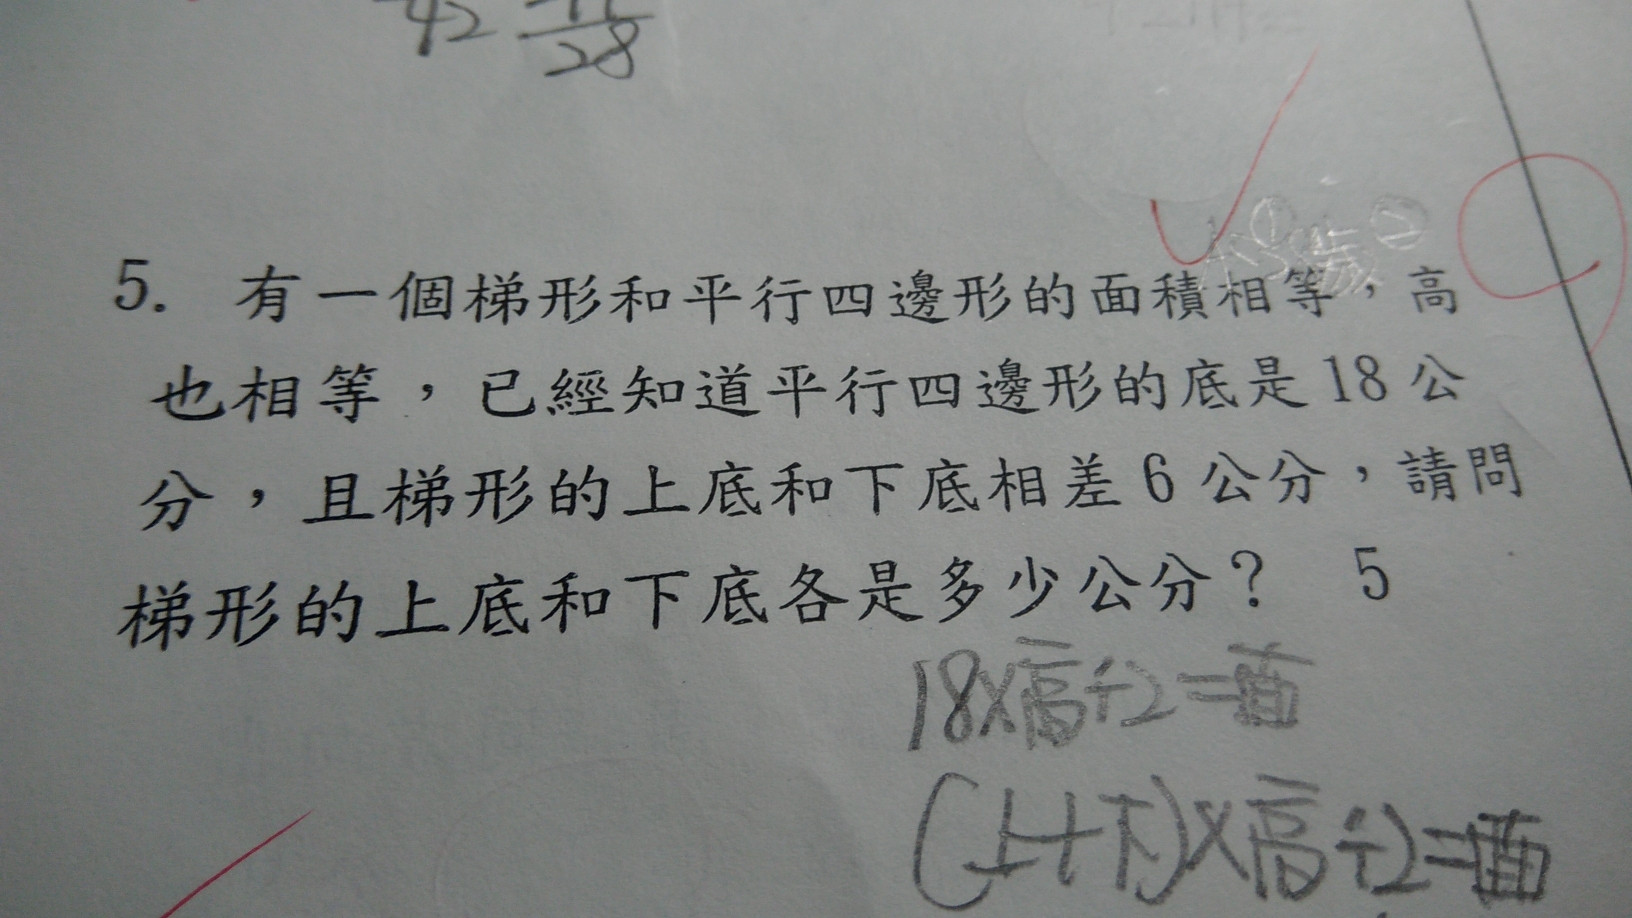 28
5. 有一個梯形和平行四邊形的面積相等，高
也相等，已經知道平行四邊形的底是18公
分，且梯形的上底和下底相差6公分，請問
梯形的上底和下底各是多少公分？ 5
18×高÷2=面
(上+下)×高÷2=面